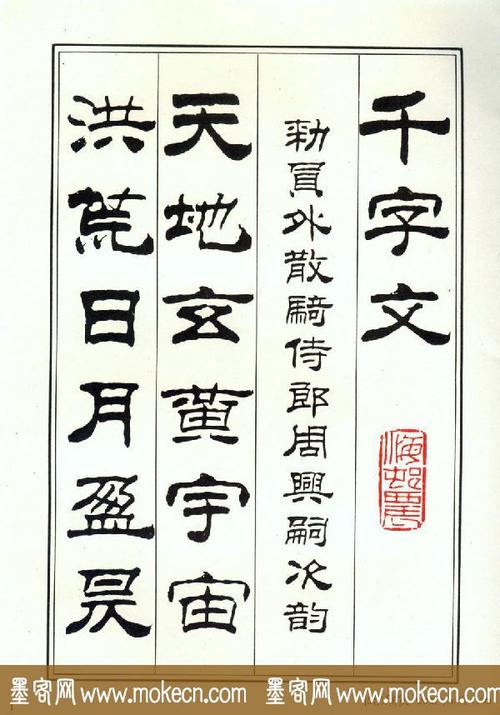 千字文
勑員外散騎侍郎周興嗣次韵
天地玄黄宇宙
洪荒日月盈昃
墨客网 www.mokecn.com 墨客网 www.mokecn.com